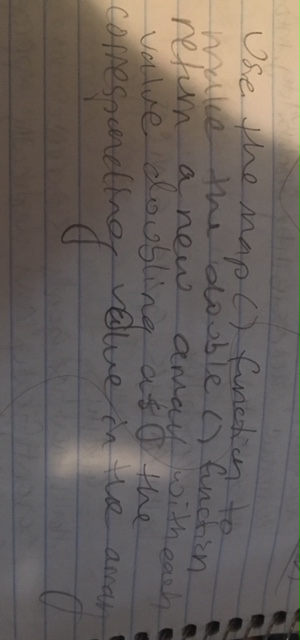 Use the map() function to
make the double() function
return a new array with each
value doubling as the
corresponding value in the array